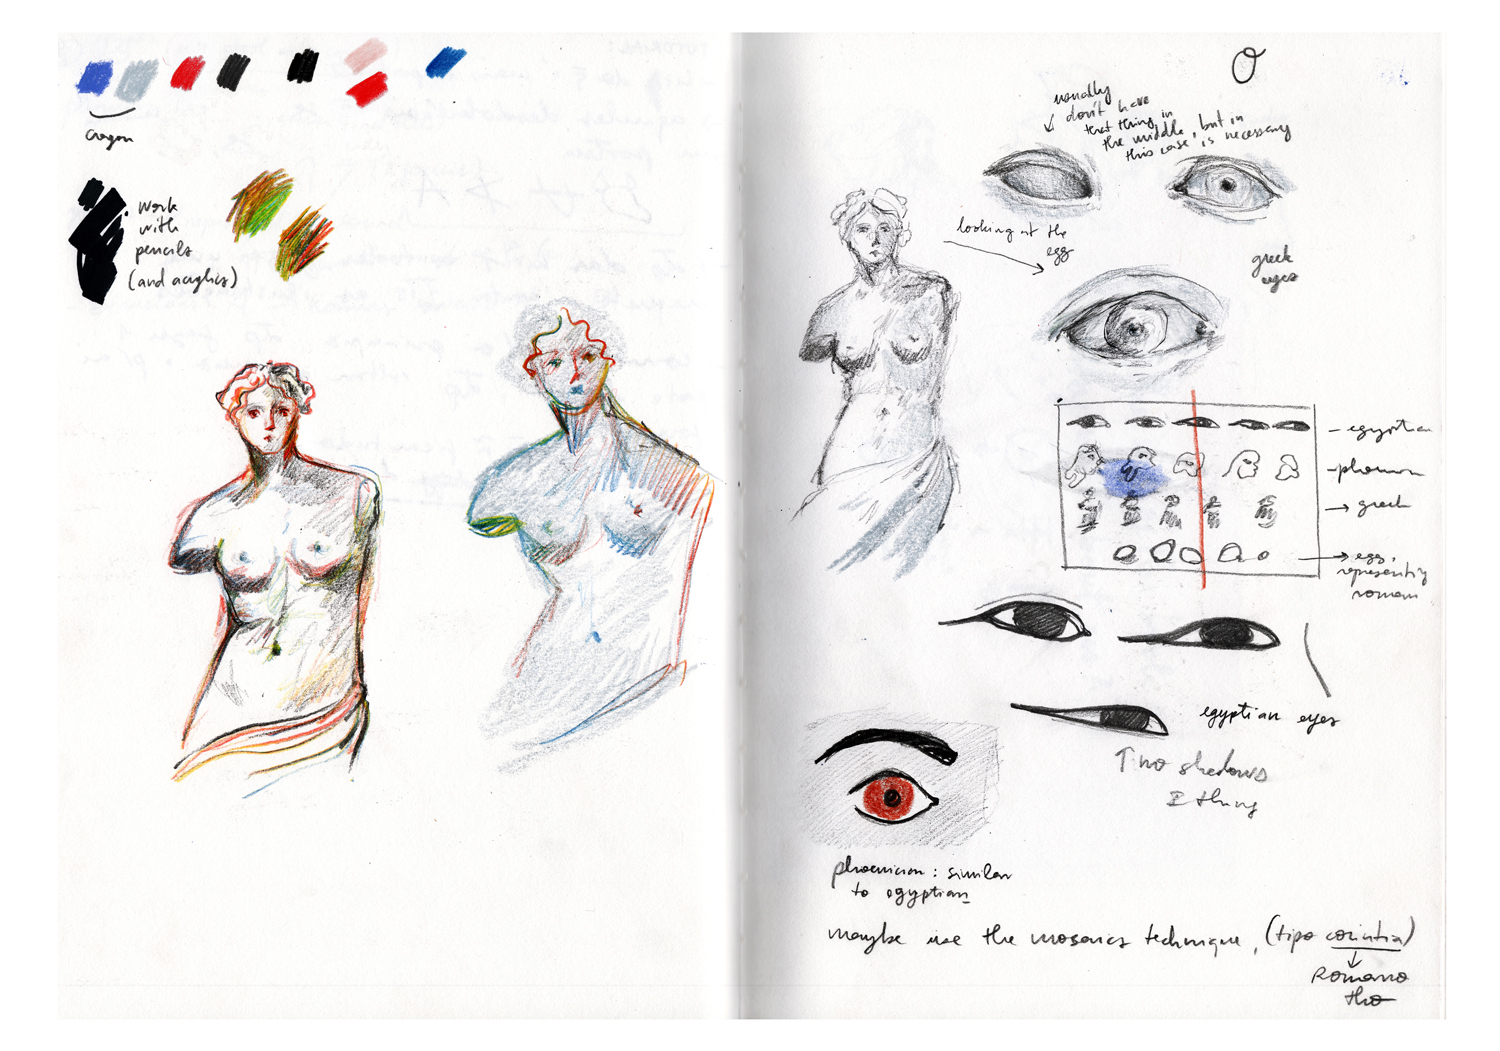 crayon
work
with
pencils
(and acrylics)
usually
don't have
that thing in
the middle, but in
this case, is necessary
looking at the
egg
greek
eyes
- egyptian
- phoenician
→ greek
→ egg,
representing
roman
egyptian eyes
↑ no shadows
thing
phoenician: similar
to egyptian
maybe use the mosaics technique, (tipo corintia)
↓
Romano
tho